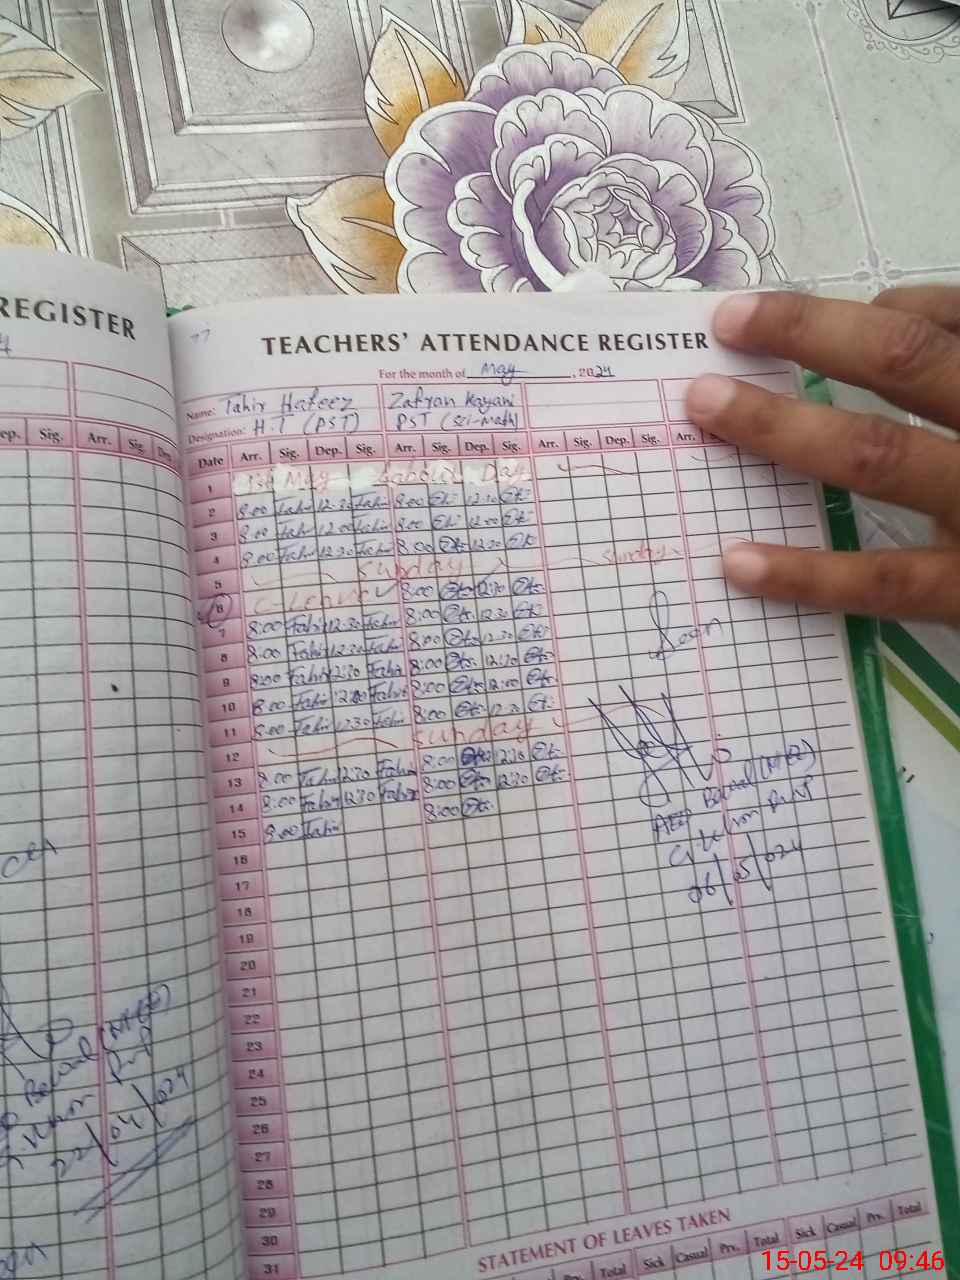 REGISTER
TEACHERS' ATTENDANCE REGISTER
For the month of May, 2024
Name: Tahir Hafeez Zafran Kayani
Designation: H.T (PST) PST (Sci-math)
Dep. Sig. Arr. Sig. Dep.
Date Arr. Sig. Dep. Sig. Arr. Sig. Dep. Sig. Arr. Sig. Dep. Sig. Arr.
1 1st May Labour Day
2 8:00 Tahir 12:30 Tahir 8:00 12:30
3 8:00 Tahir 12:00 Tahir 8:00 12:00
4 8:00 Tahir 12:30 Tahir 8:00 12:30
5 Sunday Sunday
6 C-Leave 8:00 12:30
7 8:00 Tahir 12:30 Tahir 8:00 12:30
8 8:00 Tahir 12:30 Tahir 8:00 12:30
9 8:00 Tahir 12:30 Tahir 8:00 12:30
10 8:00 Tahir 12:00 Tahir 8:00 12:00
11 8:00 Tahir 12:30 Tahir 8:00 12:30
12 Sunday
13 8:00 Tahir 12:30 Tahir 8:00 12:30
14 8:00 Tahir 12:30 Tahir 8:00 12:30
15 8:00 Tahir 8:00
16
17
18
19
20
21
22
23
24
25
26
27
28
29
30
31
Seen
06/05/024
22/04/024
STATEMENT OF LEAVES TAKEN
Prv. Total Sick Casual Prv. Total Sick Casual Prv. Total
15-05-24 09:46